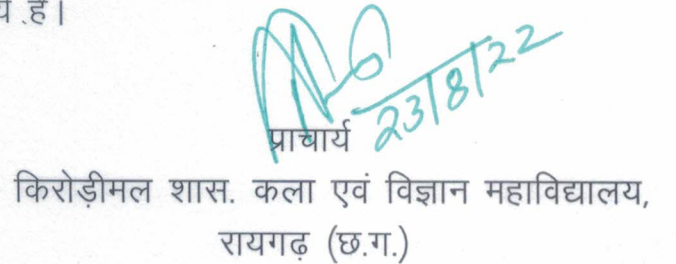 है।
23/8/22
प्राचार्य
किरोड़ीमल शास. कला एवं विज्ञान महाविद्यालय,
रायगढ़ (छ.ग.)